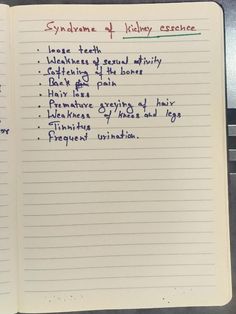 Syndrome of kidney essence
• Loose teeth
• Weakness of sexual activity
• Softening of the bones
• Back pain
• Hair loss
• Premature greying of hair
• Weakness of knees and legs
• Tinnitus
• Frequent urination.